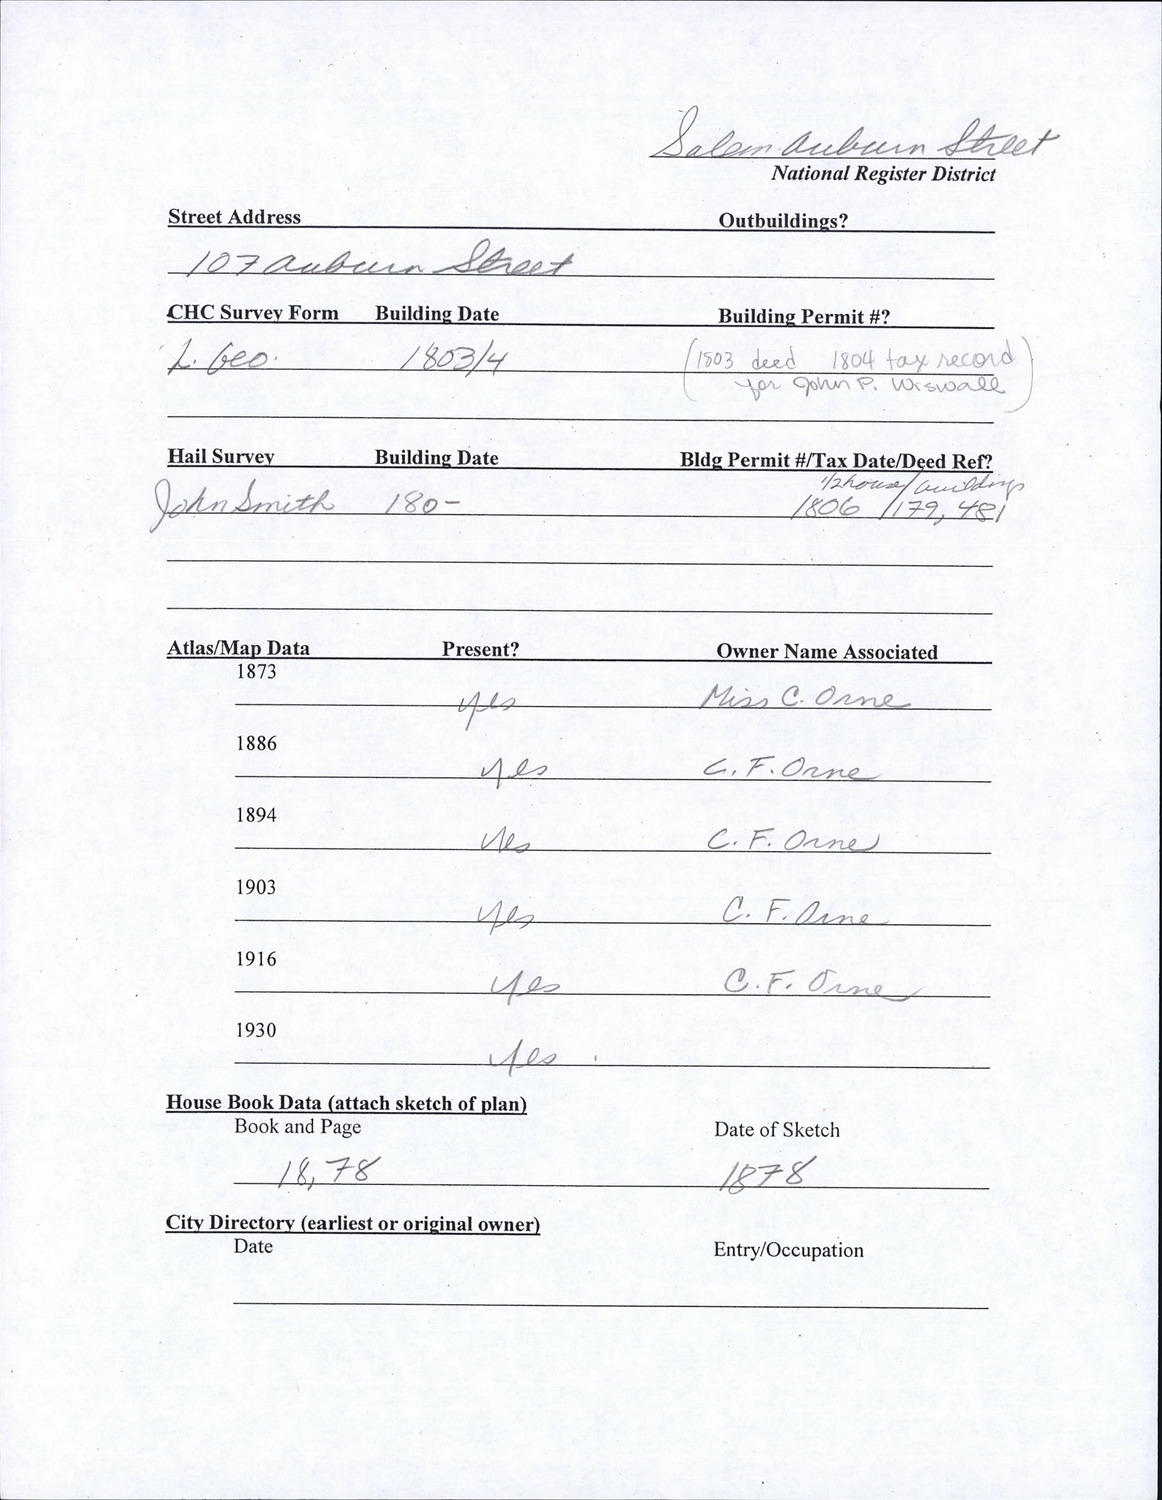 Salem-Auburn Street
National Register District
Street Address Outbuildings?
107 Auburn Street
CHC Survey Form Building Date Building Permit #?
L. Geo. 1803/4 (1803 deed 1804 tax record
for John P. Wiswall)
Hail Survey Building Date Bldg Permit #/Tax Date/Deed Ref?
1/2 house/buildings
John Smith 180- 1806 /179, 481
Atlas/Map Data Present? Owner Name Associated
1873
yes Miss C. Orne
1886
yes C. F. Orne
1894
yes C. F. Orne
1903
yes C. F. Orne
1916
yes C. F. Orne
1930
yes
House Book Data (attach sketch of plan)
Book and Page Date of Sketch
18, 78 1878
City Directory (earliest or original owner)
Date Entry/Occupation